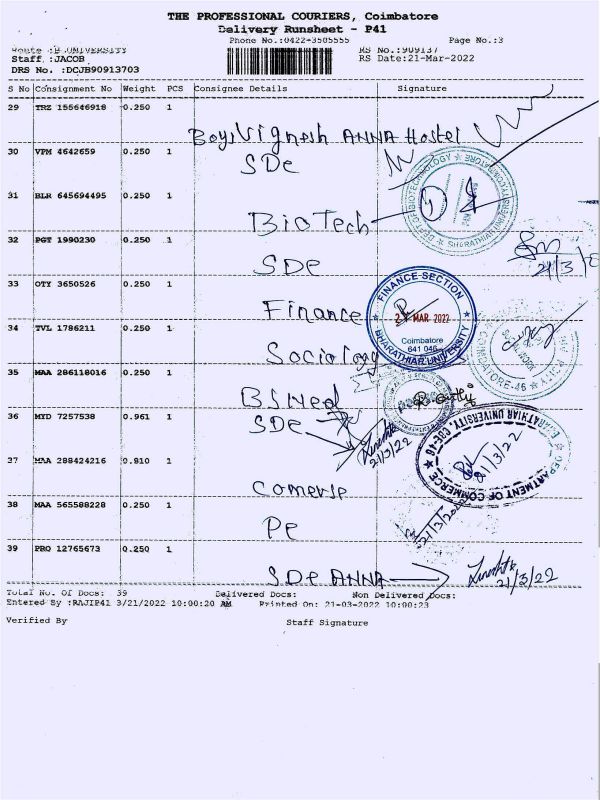 THE PROFESSIONAL COURIERS, Coimbatore
Delivery Runsheet - P41
Phone No.:0422-3505555 Page No.:3
Route :B.UNIVERSITY RS No.:909137
Staff :JACOB RS Date:21-Mar-2022
DRS No. :DCJB90913703
S No Consignment No Weight PCS Consignee Details Signature
29 TRZ 155646918 0.250 1
Boys Vignesh ANNA Hostel
30 VPM 4642659 0.250 1
SDe
31 BLR 645694495 0.250 1
BioTech
DEPT OF BIOTECHNOLOGY BHARATHIAR UNIVERSITY COIMBATORE
32 PGT 1990230 0.250 1
SDE
21/3/
33 OTY 3650526 0.250 1
Finance
FINANCE SECTION
MAR 2022
Coimbatore
641 046
BHARATHIAR UNIVERSITY
34 TVL 1786211 0.250 1
Sociology
COIMBATORE-46
35 MAA 286118016 0.250 1
BSMed
36 MYD 7257538 0.961 1
SDe
21/3/22
37 MAA 288424216 0.810 1
Comerse
BHARATHIAR UNIVERSITY, CBE-46
21/3/22
DEPARTMENT OF COMMERCE
38 MAA 565588228 0.250 1
Pe
21/3/22
39 PRO 12765673 0.250 1
SDe ANNA
21/3/22
Total No. Of Docs: 39 Delivered Docs: Non Delivered Docs:
Entered By :RAJIP41 3/21/2022 10:00:20 AM Printed On: 21-03-2022 10:00:23
Verified By Staff Signature